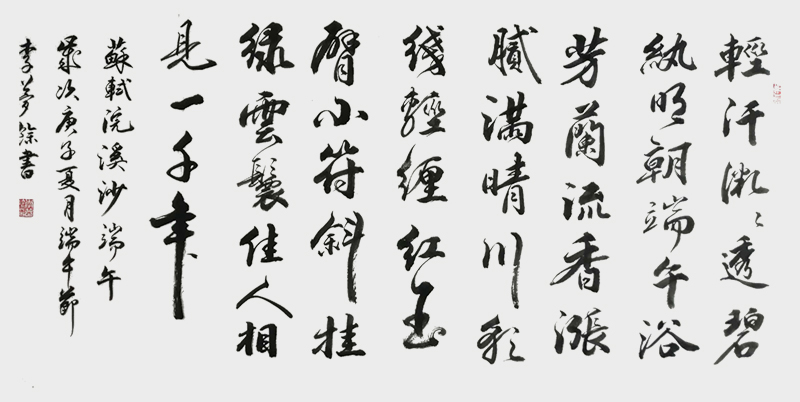 輕汗微〻透碧
紈明朝端午浴
芳蘭流香漲
膩滿晴川彩
綫輕纏红玉
臂小符斜挂
绿雲鬟佳人相
見一千年
蘇軾浣溪沙端午
歲次庚子夏月端午節
李夢
書